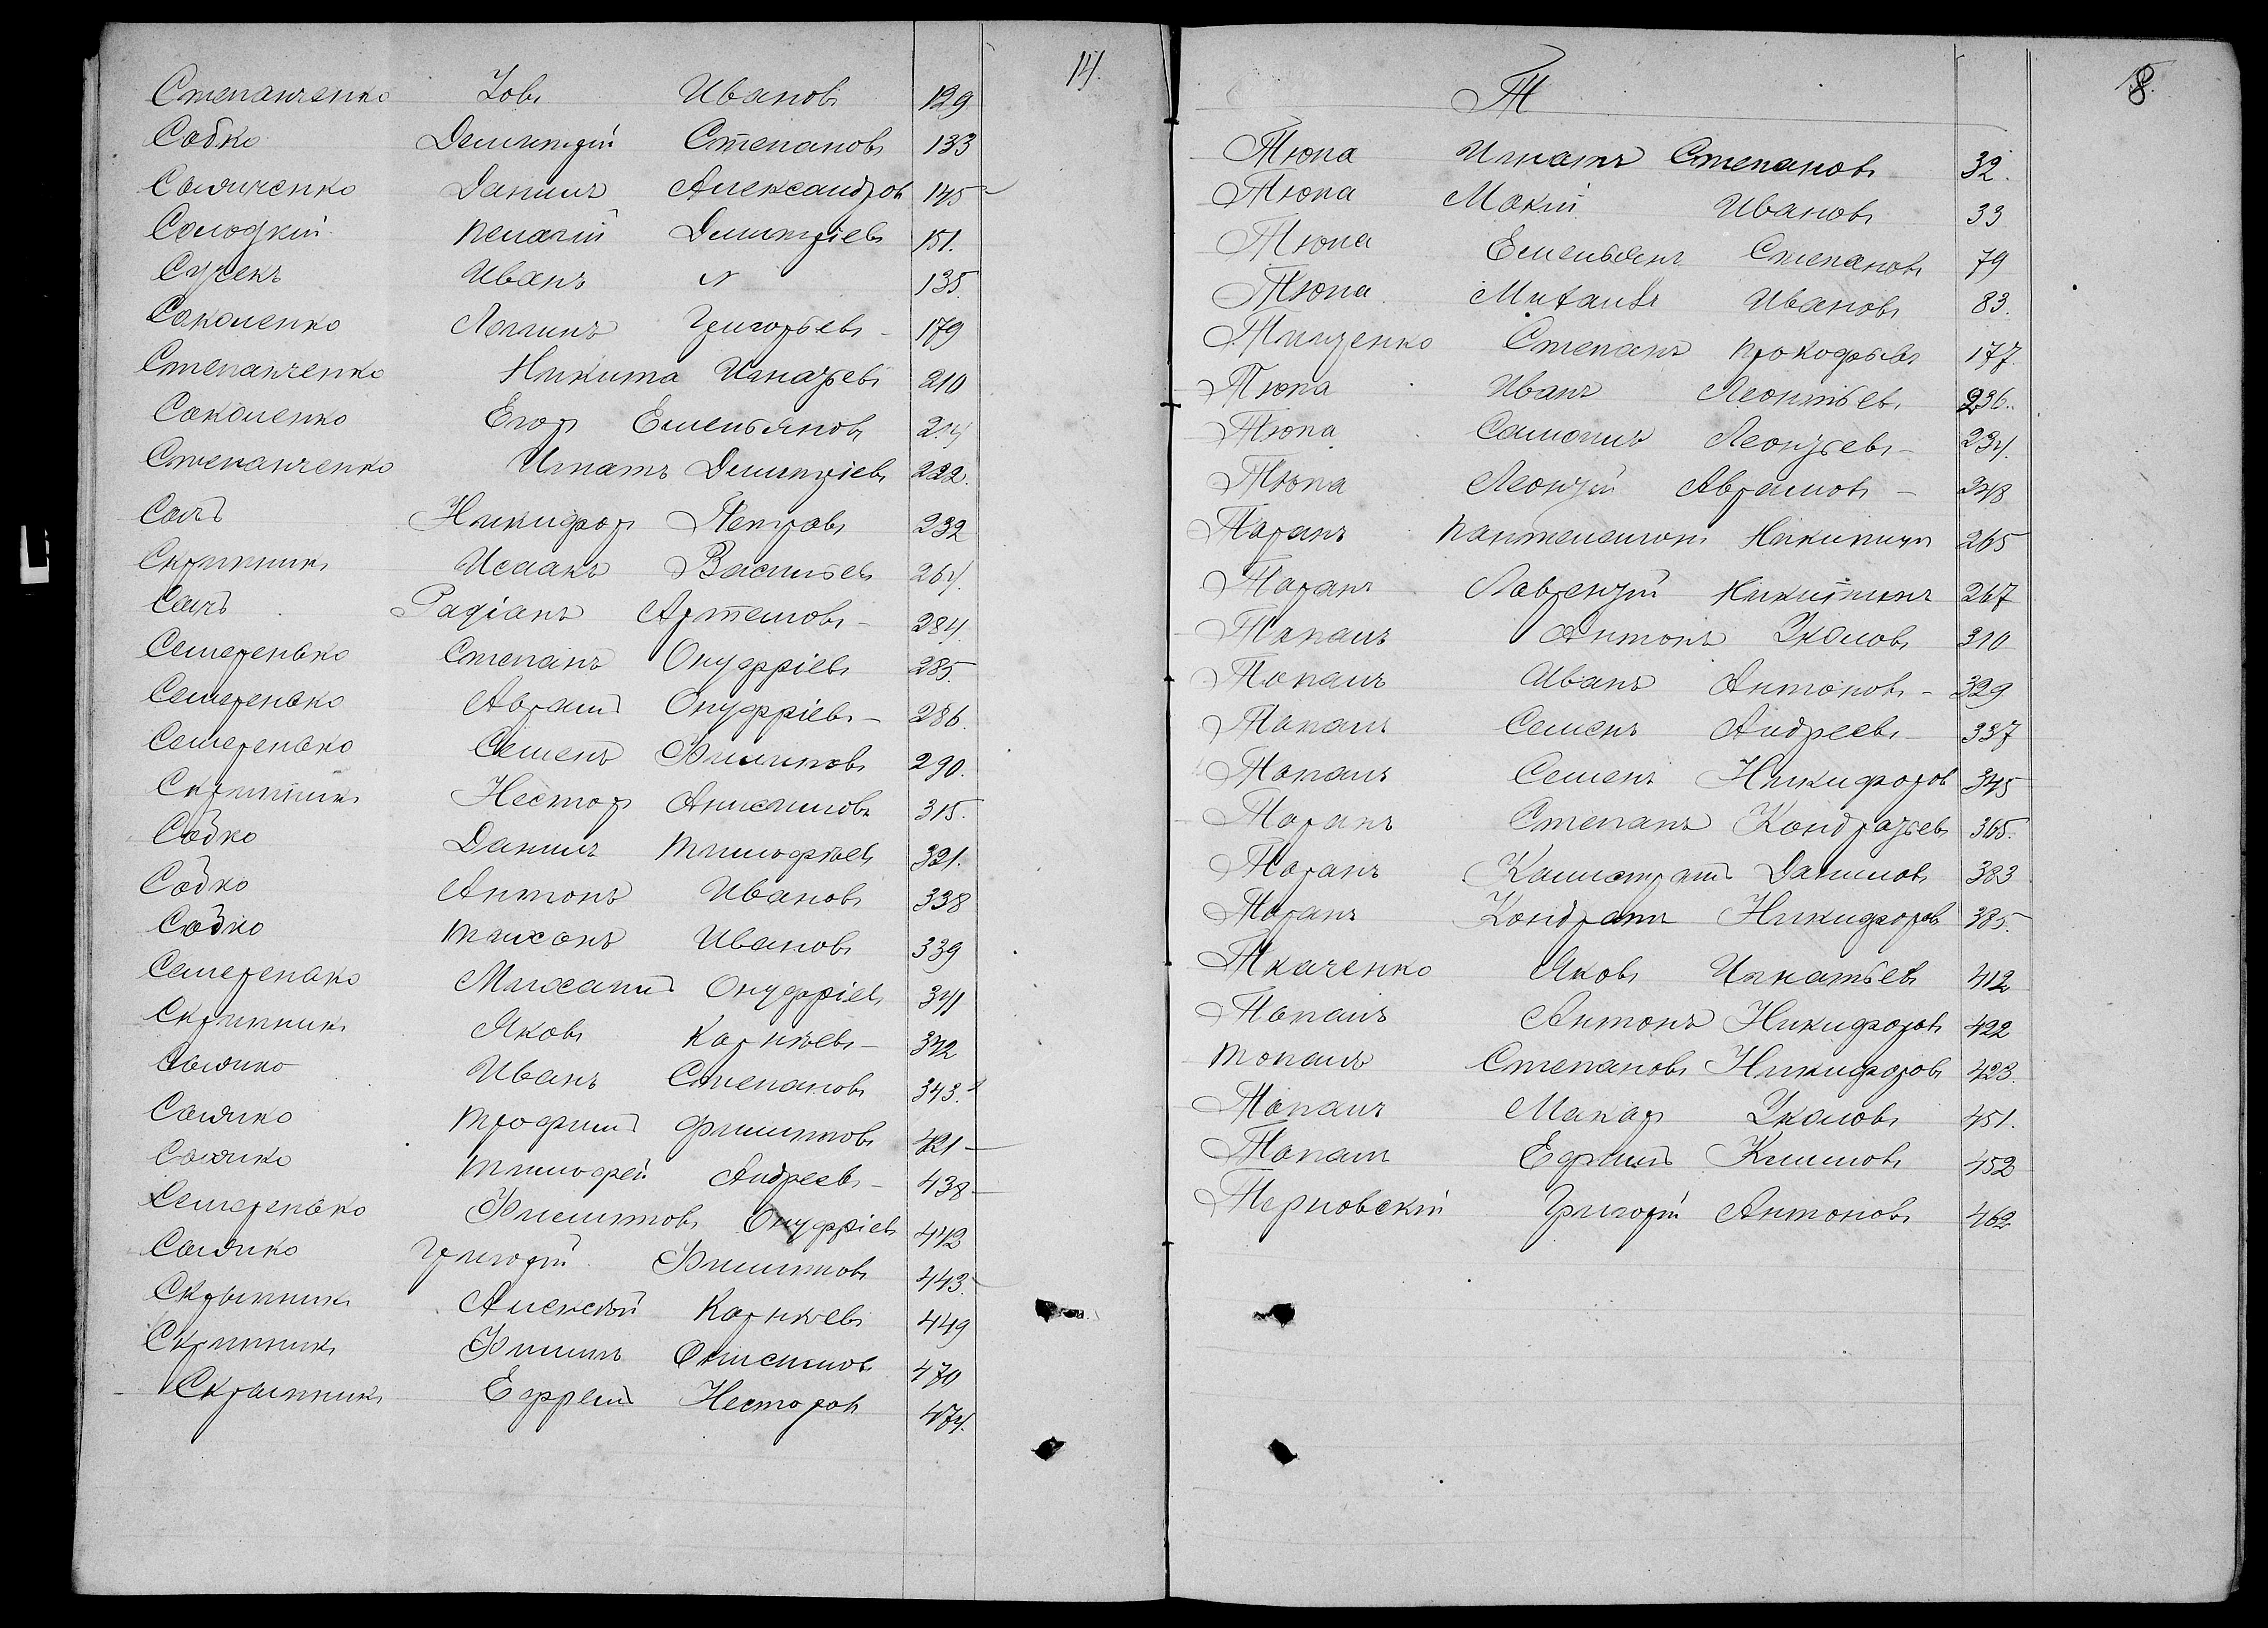 14.
Степанченко Іовъ Ивановъ 129
Собко Димитрій Степановъ 133
Саличенко Данилъ Александровъ 145
Солодкій Пелагій Димитріевъ 151.
Сучекъ Иванъ 135.
Соколенко Логинъ Григорьевъ 179
Степанченко Никита Игнатьевъ 210
Соколенко Егоръ Емельяновъ 214
Степанченко Игнатъ Димитріевъ 222.
Сачъ Никифоръ Петровъ 232
Скрипникъ Исаакъ Васильевъ 264.
Сачъ Радіанъ Артемовъ 284
Семеренько Степанъ Онуфріевъ 285.
Семеренько Аврамъ Онуфріевъ 286.
Семеренько Семенъ Филиповъ 290.
Скрипникъ Несторъ Анисимовъ 315.
Собко Данилъ Тимофѣевъ 321.
Собко Антонъ Ивановъ 338
Собко Тихонъ Ивановъ 339
Семеренько Михаилъ Онуфріевъ 341
Скрипникъ Яковъ Корнѣевъ 342
Салико Иванъ Степановъ 343.
Салико Трофимъ Филиповъ 421
Салико Тимофей Андреевъ 438
Семеренько Онуфріевъ 442
Салико Григорій Филиповъ 443.
Скрыпникъ Алексѣй Корнѣевъ 449
Скрипникъ Филипъ Онисимовъ 470
Скрыпникъ Ефремъ Несторовъ 474.
8.
Т
Тюпа Игнатъ Степановъ 32.
Тюпа Мокій Ивановъ 33
Тюпа Емельянъ Степановъ 79
Тюпа Ивановъ 83.
Тищенко Степанъ Прокофьевъ 177.
Тюпа Иванъ Леонтьевъ 236.
Тюпа Самоилъ Леонтьевъ 234.
Тюпа Леонтій Аврамовъ 248
Таранъ Пантелеимонъ Никитинъ 265
Таранъ Лаврентій Никитинъ 267
Топалъ Антонъ 310
Топалъ Иванъ Антоновъ 329
Топалъ Семенъ Андреевъ 337
Топалъ Семенъ Никифоровъ 345
Таранъ Степанъ Кондратьевъ 365.
Таранъ Калистратъ Даниловъ 383
Таранъ Кондратъ Никифоровъ 385.
Ткаченко Яковъ Игнатьевъ 412
Топалъ Антонъ Никифоровъ 422
Топалъ Степановъ Никифоровъ 423.
Топалъ Макаръ 451.
Топалъ Ефимъ Климовъ 452
Терновскій Григорій Антоновъ 462